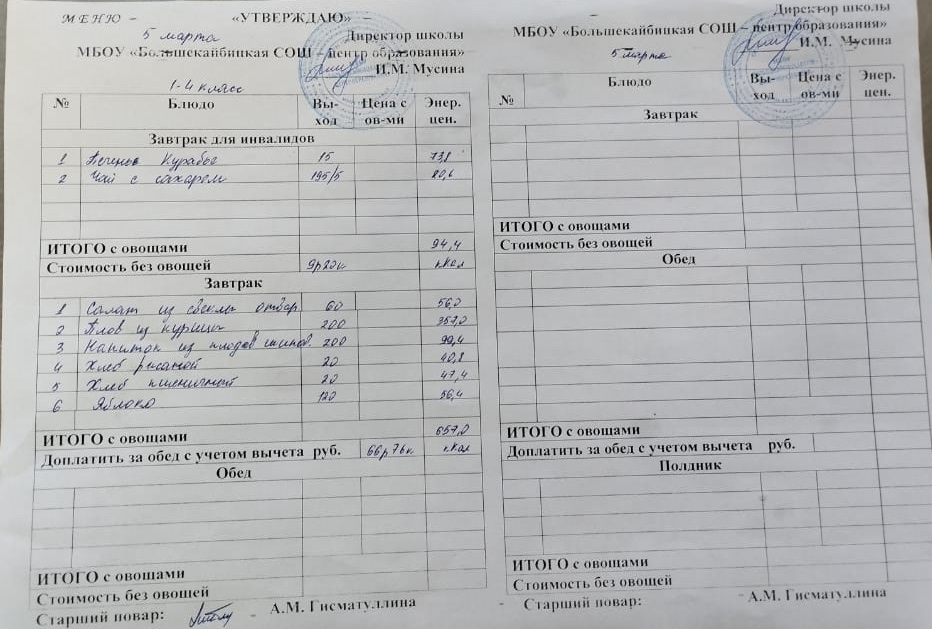 МЕНЮ – «УТВЕРЖДАЮ» –
5 марта Директор школы
МБОУ «Большекайбицкая СОШ – центр образования»
И.М. Мусина
1-4 класс
№ Блюдо Вы-ход Цена с ов-ми Энер. цен.
Завтрак для инвалидов
1 Печенье Курабье 15 73,8
2 Чай с сахаром 195/5 20,6
ИТОГО с овощами 94,4
Стоимость без овощей 9р20к ккал
Завтрак
1 Салат из свеклы отвар 60 56,0
2 Плов из курицы 200 357,0
3 Напиток из плодов шипов. 200 99,4
4 Хлеб ржаной 20 40,8
5 Хлеб пшеничный 20 47,4
6 Яблоко 120 56,4
ИТОГО с овощами 657,0
Доплатить за обед с учетом вычета руб. 66р76к. ккал
Обед
ИТОГО с овощами
Стоимость без овощей
Старший повар: А.М. Гисматуллина
Директор школы
МБОУ «Большекайбицкая СОШ – центр образования»
5 марта И.М. Мусина
№ Блюдо Вы-ход Цена с ов-ми Энер. цен.
Завтрак
ИТОГО с овощами
Стоимость без овощей
Обед
ИТОГО с овощами
Доплатить за обед с учетом вычета руб.
Полдник
ИТОГО с овощами
Стоимость без овощей
Старший повар: А.М. Гисматуллина